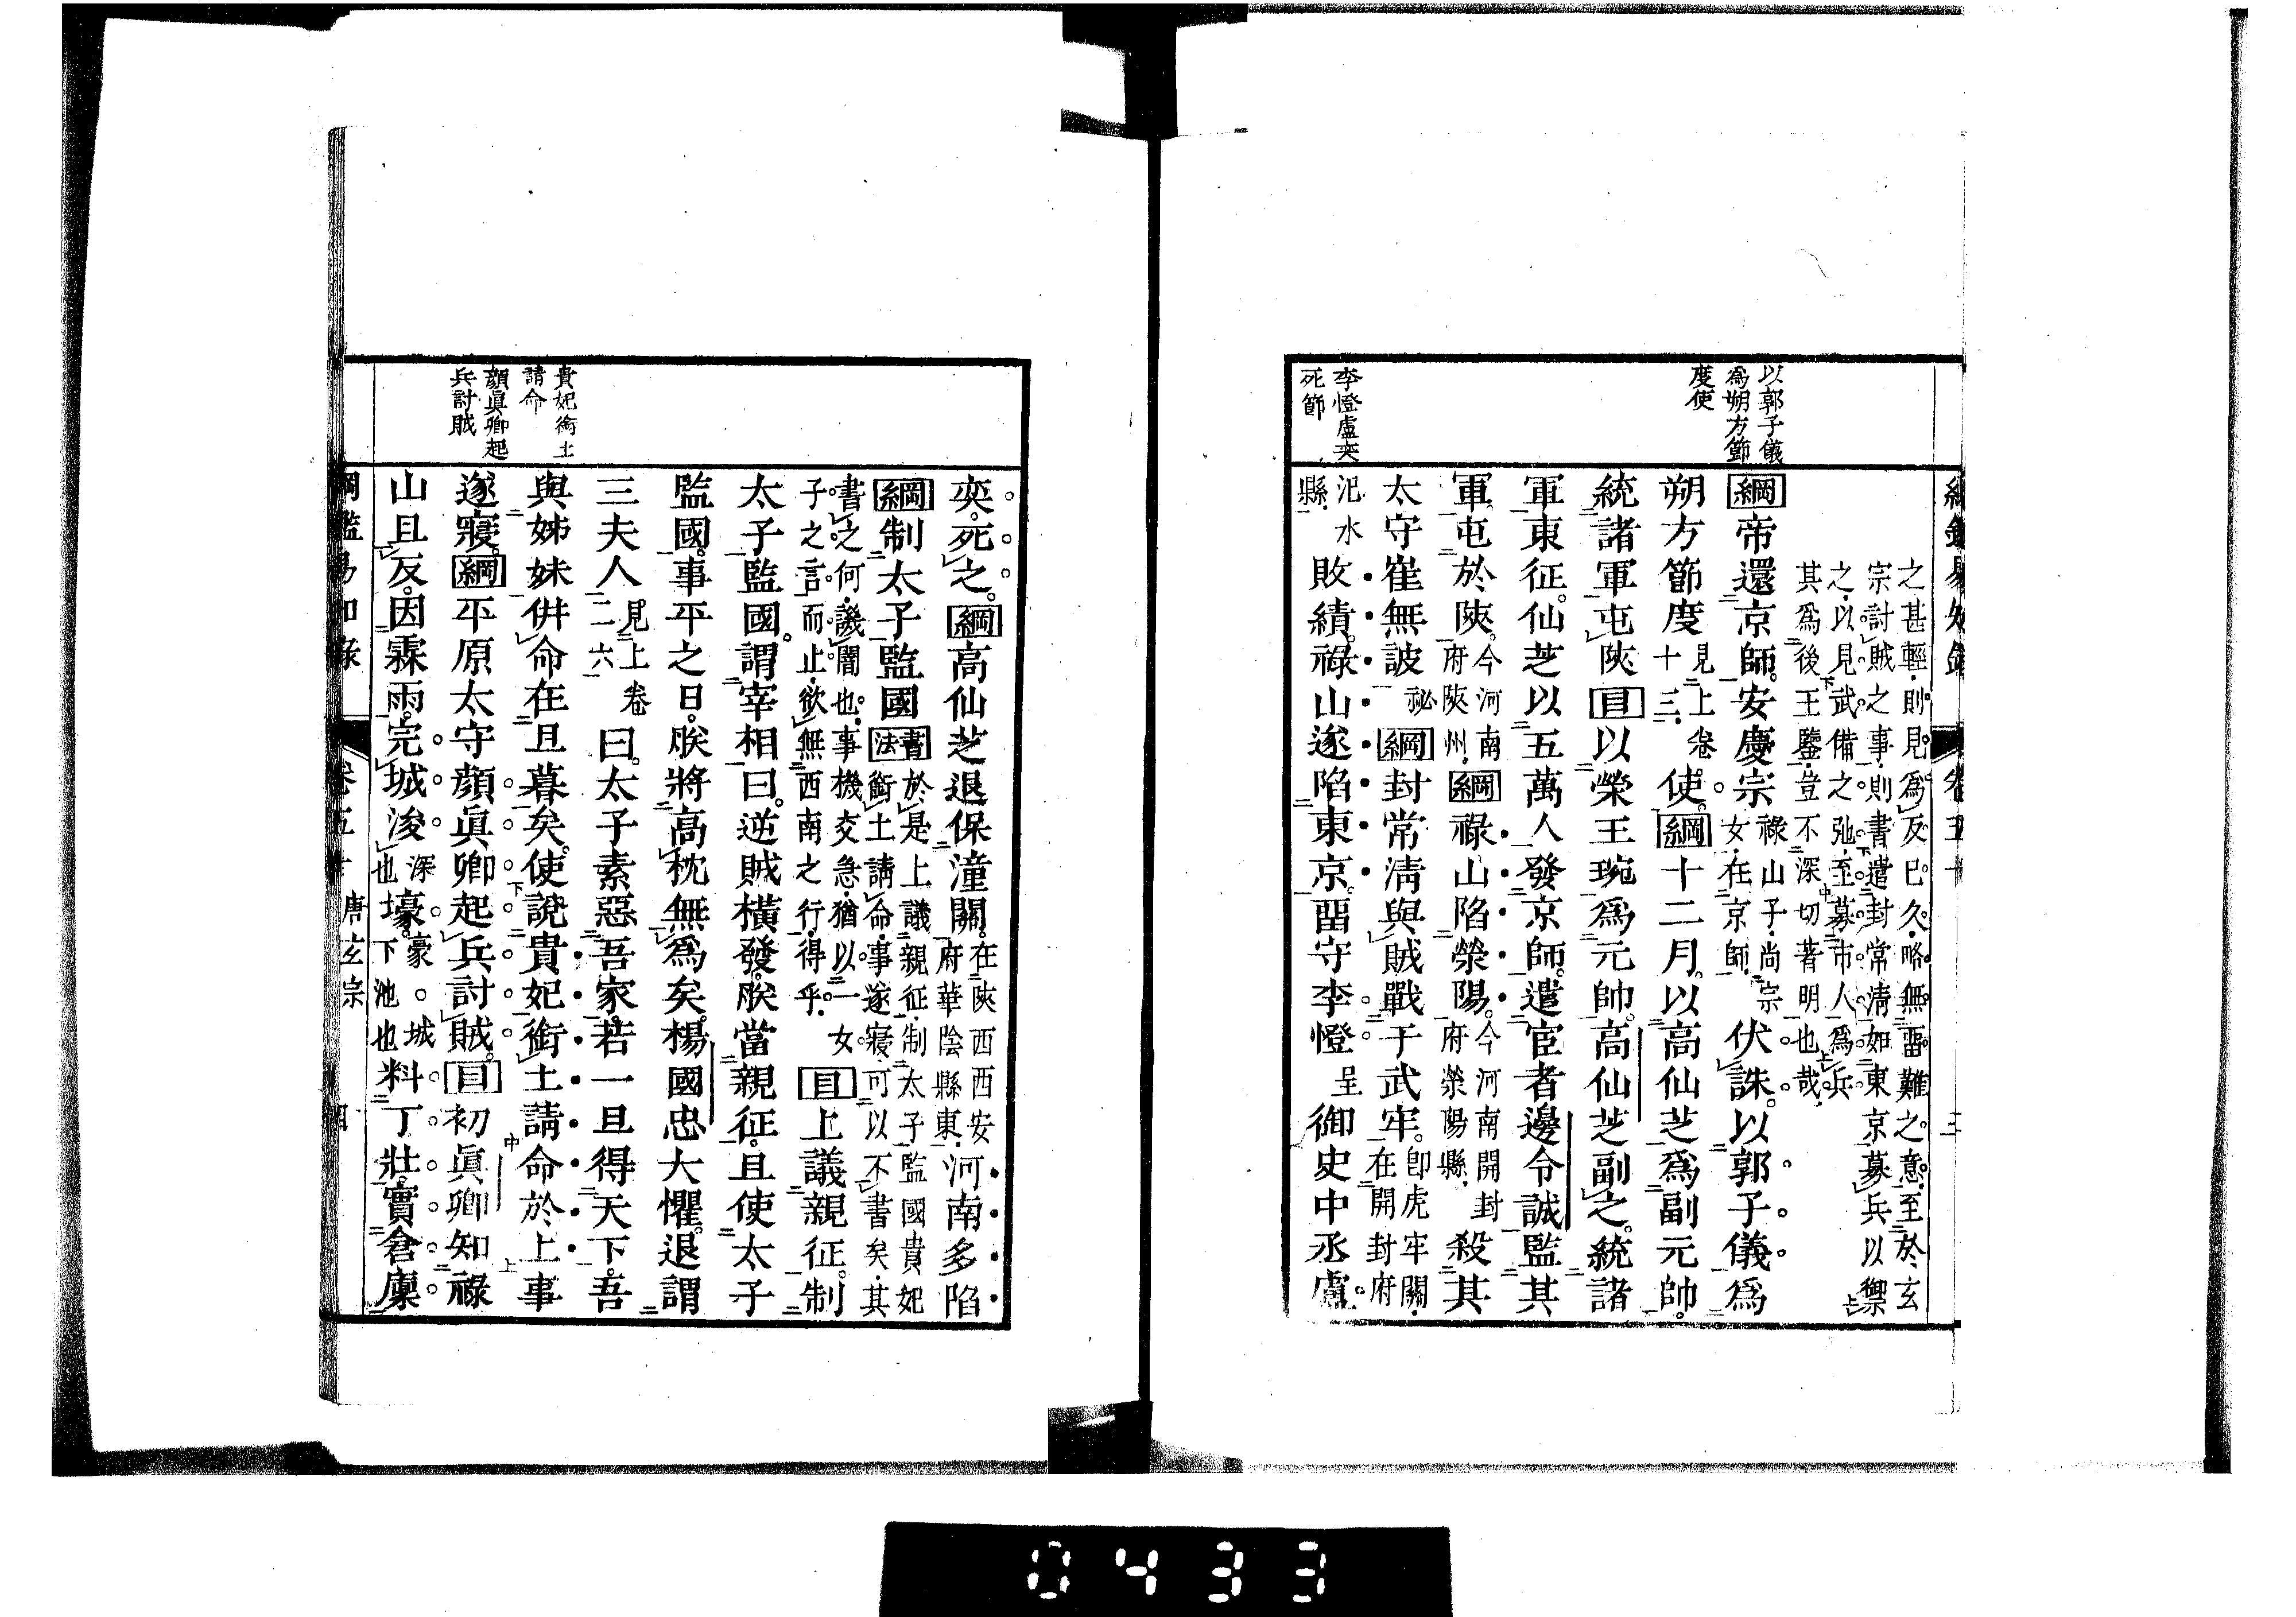 以郭子儀
爲朔方節
度使
李憕盧奕
死節
之甚輕則見爲反已久略無畱難之意至於玄
宗討賊之事則書遣封常淸如東京募兵以禦
之以見武備之弛至募市人爲兵
其爲後王鑒豈不深切著明也哉
綱帝還京師安慶宗祿山子尚宗女在京師伏誅以郭子儀爲
朔方節度見上卷十三使綱十二月以高仙芝爲副元帥
統諸軍屯陝目以榮王琬爲元帥高仙芝副之統諸
軍東征仙芝以五萬人發京師遣宦者邊令誠監其
軍屯於陝今河南府陝州綱祿山陷滎陽今河南開封府滎陽縣殺其
太守崔無詖祕綱封常淸與賊戰于武牢卽虎牢關在開封府
汜水縣敗績祿山遂陷東京畱守李憕呈御史中丞盧
貴妃銜土
請命
顏眞卿起
兵討賊
奕死之綱高仙芝退保潼關在陝西西安府華陰縣東河南多陷
綱制太子監國書法於是上議親征制太子監國貴妃銜土請命事遂寢可以不書矣其
書之何譏闇也事機交急猶以一女
子之言而止欲無西南之行得乎目上議親征制
太子監國謂宰相曰逆賊橫發朕當親征且使太子
監國事平之日朕將高枕無爲矣楊國忠大懼退謂
三夫人見上卷二六曰太子素惡吾家若一旦得天下吾
與姊妹併命在旦暮矣使說貴妃銜土請命於上事
遂寢綱平原太守顏眞卿起兵討賊目初眞卿知祿
山且反因霖雨完城浚深也壕豪城下池也料丁壯實倉廩
綱鑑易知錄 卷五十 唐玄宗 四
0433